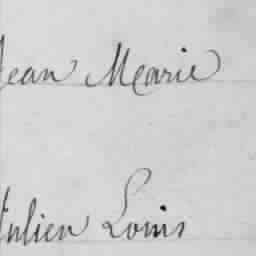 Jean Marie
Julien Louis